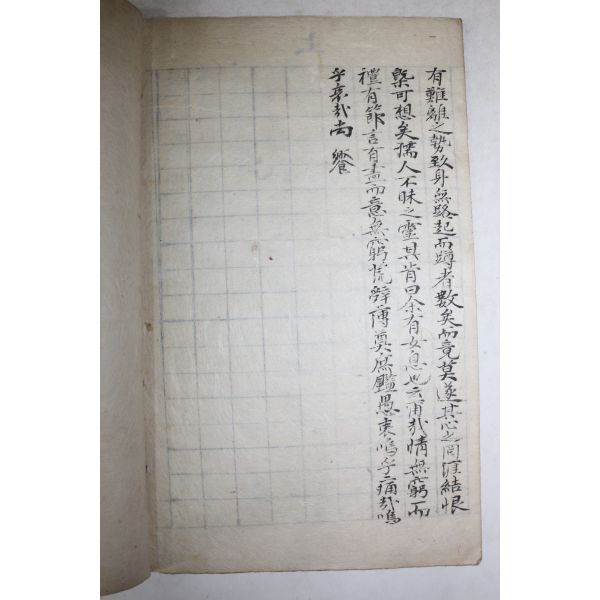 有難離之勢致身無路起而蹲者數矣而竟莫遂其心之罔涯結恨
槩可想矣孺人不昧之靈其肯曰余有女息也云甫哉情無窮而
禮有節言有盡而意無窮荒辭薄奠庶鑑愚衷嗚乎痛哉嗚
乎哀哉尙 饗